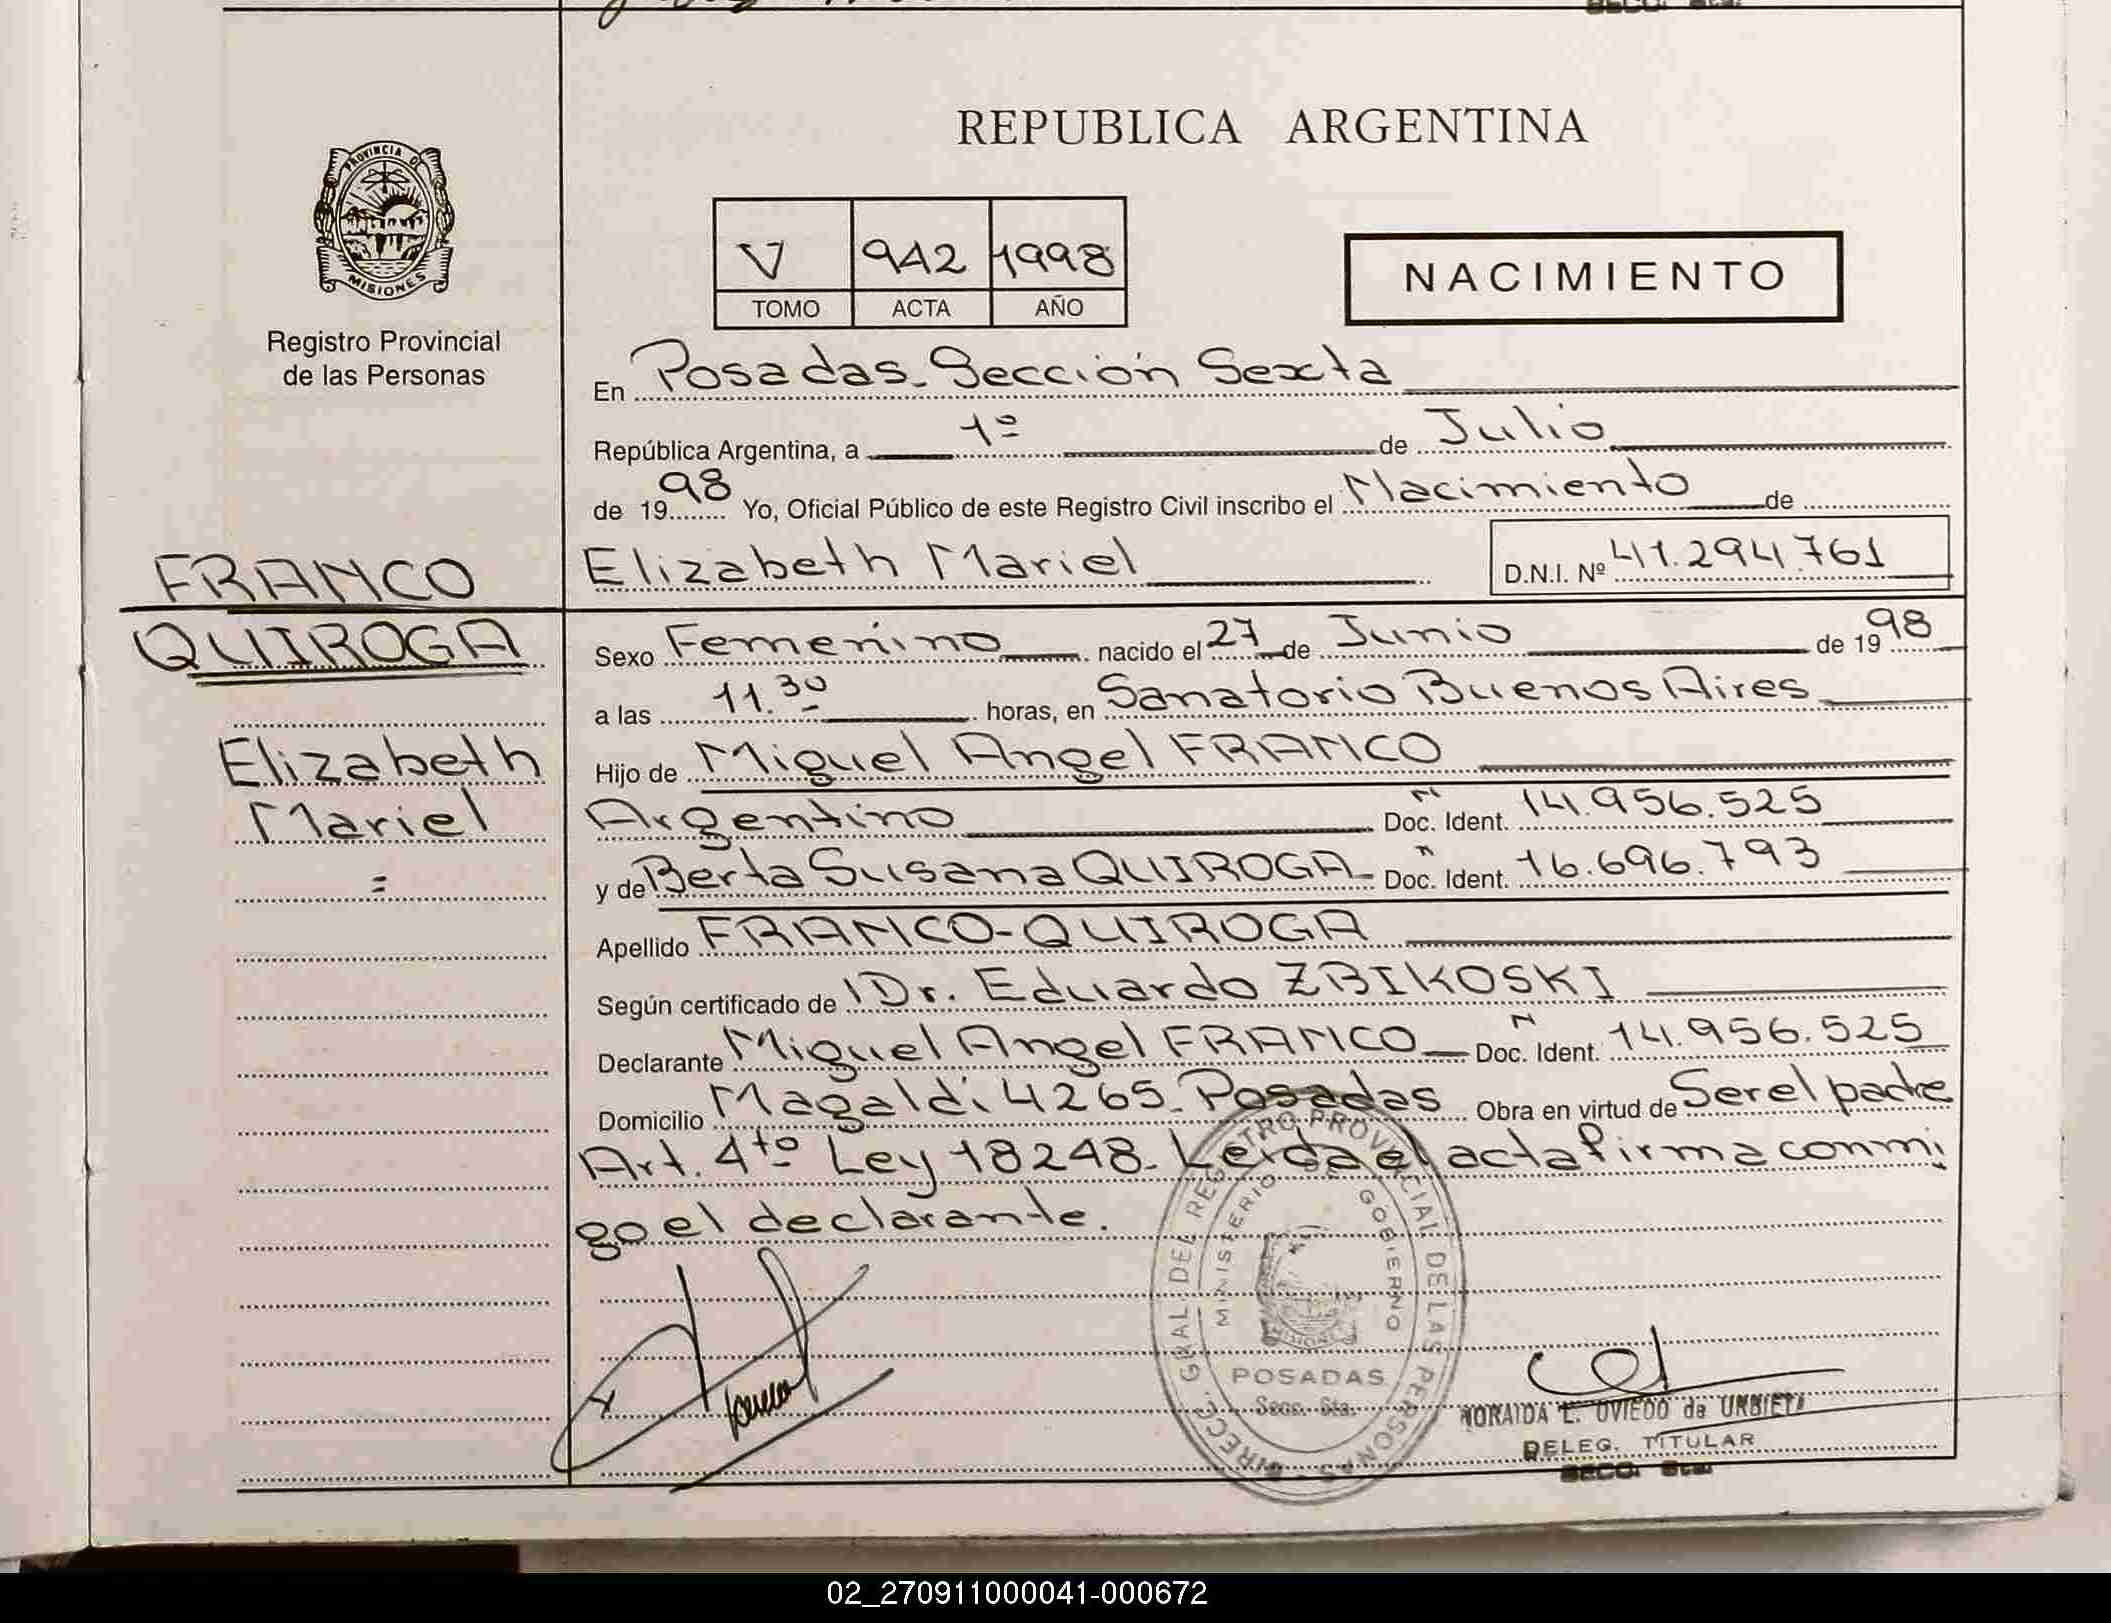 REPUBLICA ARGENTINA
PROVINCIA DE
MISIONES
Registro Provincial
de las Personas
V 942 1998
TOMO ACTA AÑO
NACIMIENTO
En Posadas. Sección Sexta
República Argentina, a 1º de Julio
de 1998 Yo, Oficial Público de este Registro Civil inscribo el Nacimiento de
FRANCO
QUIROGA
Elizabeth
Mariel
=
Elizabeth Mariel D.N.I. Nº 41.294.761
Sexo Femenino nacido el 27 de Junio de 1998
a las 11.30 horas, en Sanatorio Buenos Aires
Hijo de Miguel Angel FRANCO
Argentino Doc. Ident. 14.956.525
y de Berta Susana QUIROGA Doc. Ident. 16.696.793
Apellido FRANCO-QUIROGA
Según certificado de Dr. Eduardo ZBIKOSKI
Declarante Miguel Angel FRANCO Doc. Ident. 14.956.525
Domicilio Magaldi 4265. Posadas Obra en virtud de Ser el padre
Art. 4to Ley 18248. Leida el acta firma conmi
go el declarante.
DIRECC. GRAL. DEL REGISTRO PROVINCIAL DE LAS PERSONAS
MINISTERIO DE GOBIERNO
MISIONES
POSADAS
Secc. 6ta.
NORAIDA E. OVIEDO de URBIETA
DELEG. TITULAR
SECC. 6ta.
02_270911000041-000672